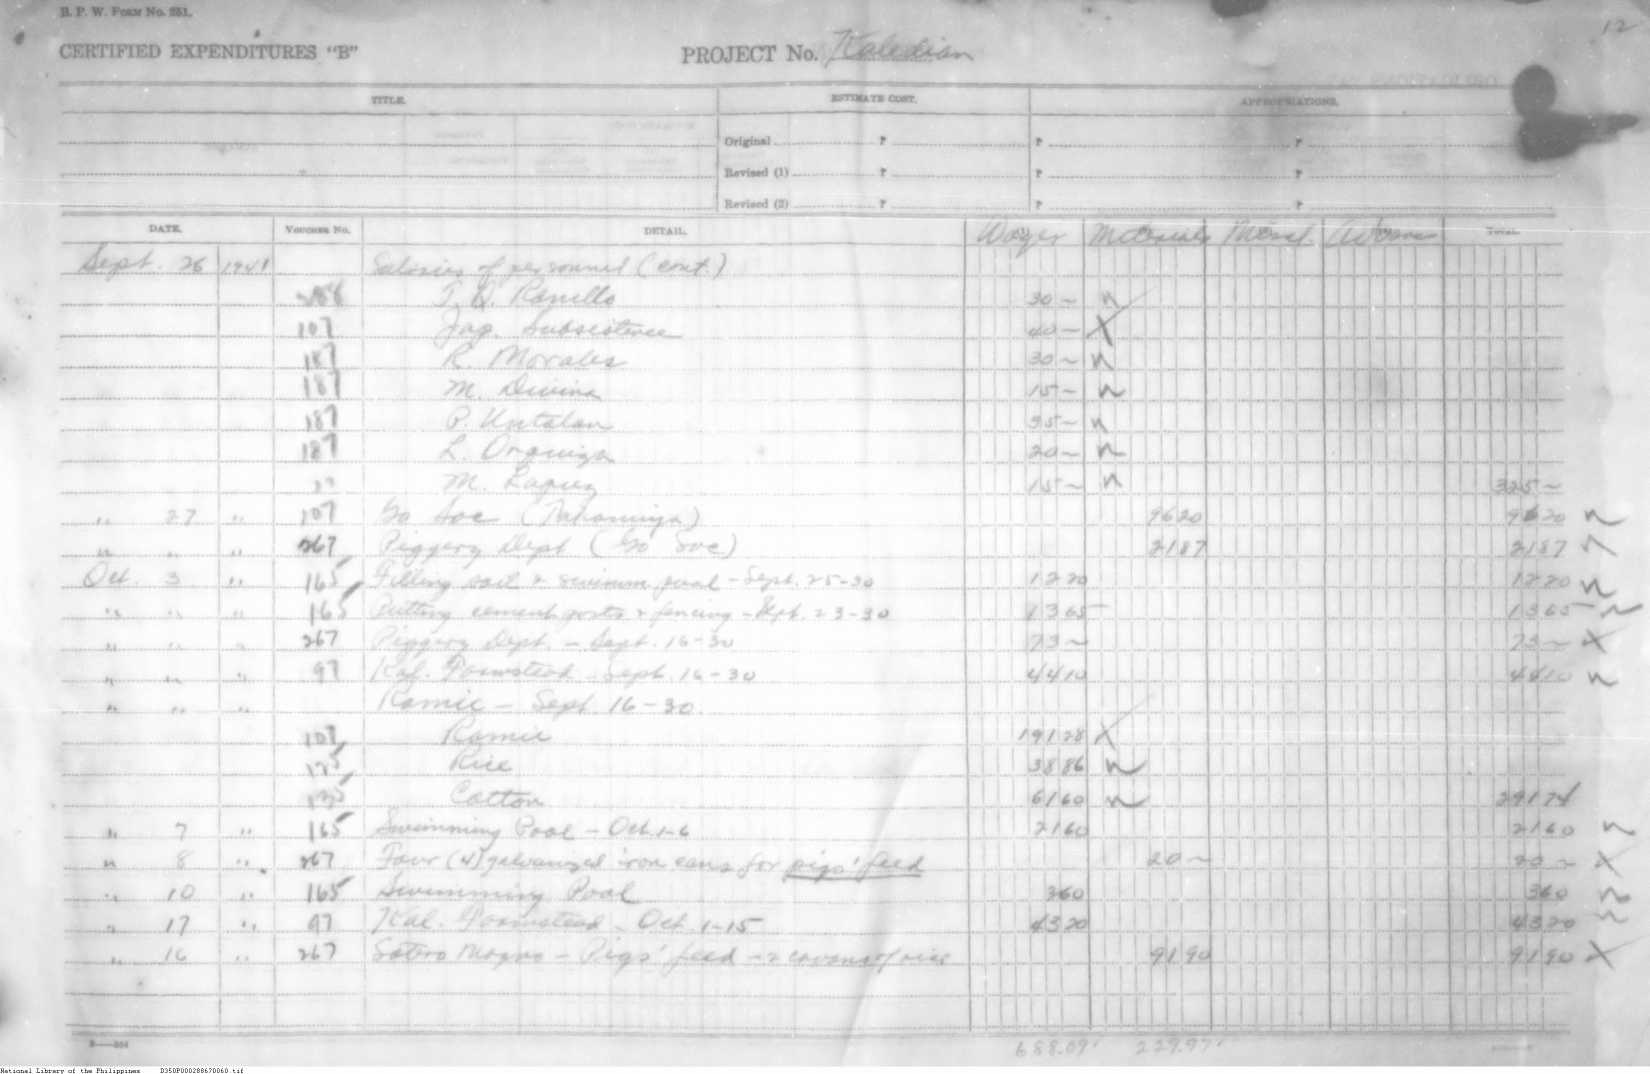 B. P. W. FORM No. 251.
12
CERTIFIED EXPENDITURES "B" PROJECT No. Kaledian
TITLE. ESTIMATE COST. APPROPRIATIONS.
Original ₱ ₱ ₱
Revised (1) ₱ ₱ ₱
Revised (2) ₱ ₱ ₱
DATE. VOUCHER No. DETAIL. Wages Materials TOTAL.
Sept. 26 1941 Salaries of personnel (cont.)
30 ~
107 Jap. Subsistence 40 ~
187 R. Morales 30 ~
187 M. Divina 15 ~
187 P. Untalan
187 L. 20 ~
M. 15 ~ 325 ~
" 27 " 107 Go Soc 9620 9620
" " " 267 Piggery Dept (Go Soc) 2187 2187
Oct. 3 " 165 Filling soil & swimm. pool - Sept. 25-30 1220 1220
" " " 165 Putting cement posts & fencing - Sept. 23-30 1365 1365
" " " 267 Piggery Dept. - Sept. 16-30 73 ~ 73 ~
" " " 97 Kal. Farmstead - Sept. 16-30 4410 4410
" " " Ramie - Sept. 16-30.
107 Ramie 19128
Rice 3886
Cotton 6160 29174
" 7 " 165 Swimming Pool - Oct. 1-6 2160 2160
" 8 " 267 Four (4) galvanized iron cans for pigs' feed 20 ~ 20 ~
" 10 " 165 Swimming Pool 360 360
" 17 " 97 Kal. Farmstead - Oct. 1-15 4320 4320
" 16 " 267 Sotero Magno - Pigs' feed - 2 cavans of rice 9190 9190
688.09 229.97
National Library of the Philippines D350P000288670060.tif